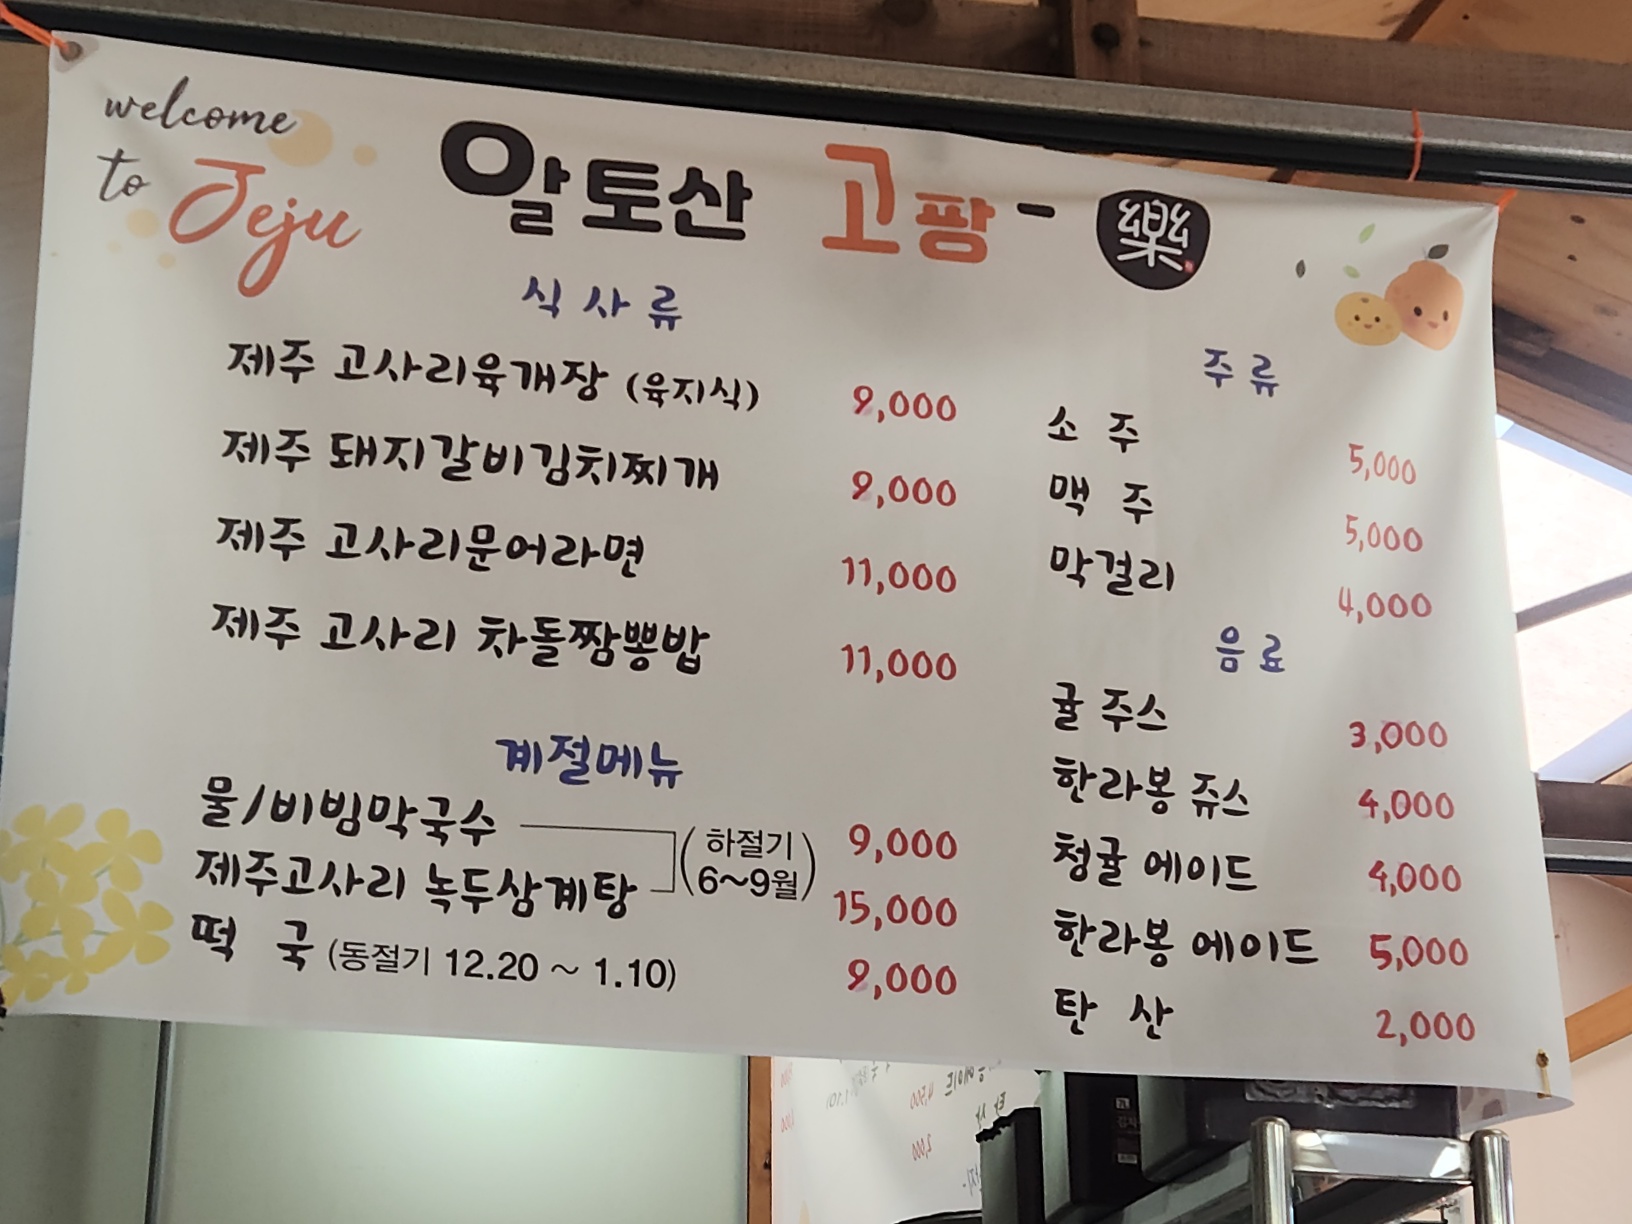 welcome
to Jeju
알토산 고팡- 樂
식사류
제주 고사리육개장 (육지식) 9,000
제주 돼지갈비김치찌개 9,000
제주 고사리문어라면 11,000
제주 고사리 차돌짬뽕밥 11,000
계절메뉴
물/비빔막국수 (하절기 9,000
제주고사리 녹두삼계탕 6~9월) 15,000
떡 국 (동절기 12.20 ~ 1.10) 9,000
주류
소 주 5,000
맥 주 5,000
막걸리 4,000
음료
귤 주스 3,000
한라봉 쥬스 4,000
청귤 에이드 4,000
한라봉 에이드 5,000
탄 산 2,000